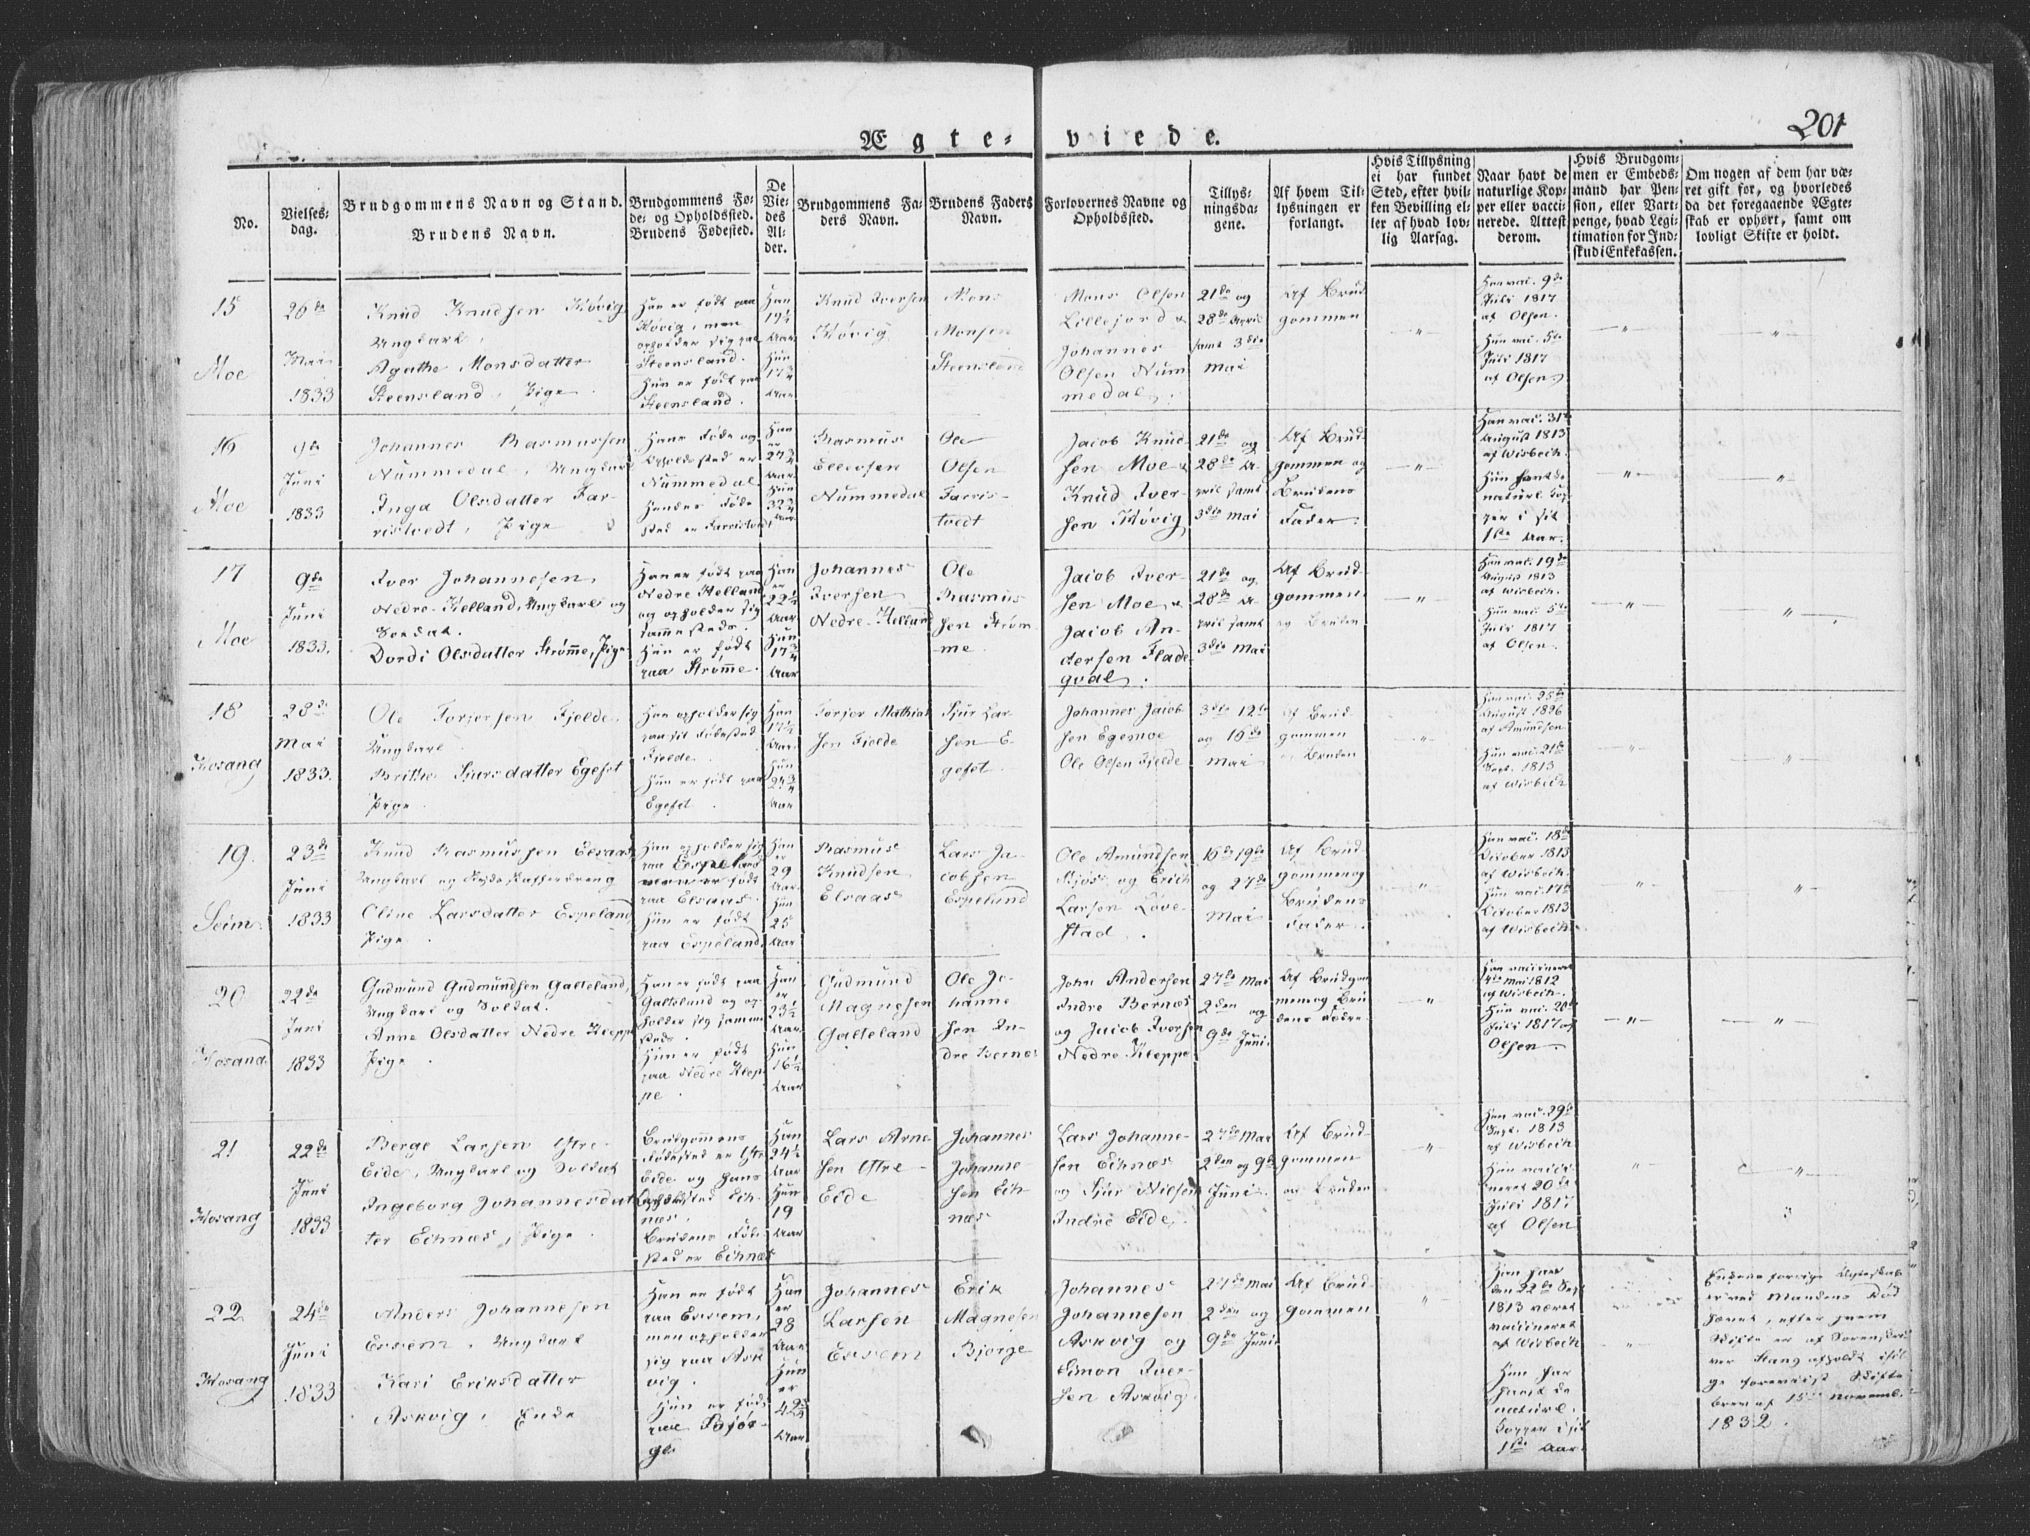 Ægte-viede.
201
No.
Vielses-
dag.
Brudgommens Navn og Stand.
Brudens Navn.
Brudgommens Fø-
de- og Opholdssted.
Brudens Fødested.
De
Vie-
des
Al-
der.
Brudgommens Fa-
ders Navn.
Brudens Faders
Navn.
Forlovernes Navne og
Opholdssted.
Tillys-
ningsda-
gene.
Af hvem Til-
lysningen er
forlangt.
Hvis Tillysning
ei har fundet
Sted, efter hvil-
ken Bevilling el-
ler af hvad lov-
lig Aarsag.
Naar havt de
naturlige Kop-
per eller vacci-
nerede. Attest
derom.
Hvis Brudgom-
men er Embeds-
mand har Pen-
sion, eller Vart-
penge, hvad Legi-
timation for Ind-
skud i Enkekassen.
Om nogen af dem har væ-
ret gift før, og hvorledes
da det foregaaende Ægte-
skab er ophørt, samt om
lovligt Skifte er holdt.
15
Moe
26de
Mai
1833
Knud Knudsen Køvig
Ungkarl.
Agathe Monsdatter
Steensland, Pige.
Han er født paa
Køvig, men
opholder sig paa
Steensland.
Hun er født paa
Steensland.
Han
19½
Aar
Hun
17¾
Aar
Knud Iversen
Køvig
Mons
Monsen
Steensland
Mons Olsen
Lillejord &
Johannes
Olsen Num
medal.
21de og
28de April
samt 3die
Mai
Af Brud
gommen
Han vac. 9de
Juli 1817
af Olsen.
Hun vac. 5te
Juli 1817
af Olsen.
16
Moe
9de
Juni
1833
Johannes Rasmussen
Nummedal, Ungkarl
Inga Olsdatter Far-
ristvedt, Pige
Hans Føde og
Opholdssted er
Nummedal.
Hendes Føde
sted er Farristvedt
Han
er
27¾
Aar
Hun
32¾
Aar
Rasmus
Ellersen
Nummedal
Ole
Olsen
Farris-
tvedt
Jacob Knud
sen Moe &
Knud Iver-
sen Køvig
21de og
28de A-
pril samt
3die Mai
Af Brud
gommen og
Brudens
Fader.
Han vac. 31te
August 1813
af Wisbech.
Hun havt de
naturl. Kop-
per i sit
1ste Aar.
17
Moe
9de
Juni
1833.
Iver Johannesen
Nedre-Helland, Ungkarl og
Soldat.
Dordi Olsdatter Strømme, Pige
Han er født paa
Nedre Helland
og opholder sig
sammesteds.
Hun er født
paa Strømme.
Han
er
22½
Aar
Hun
17¾
Aar
Johannes
Iversen
Nedre-Helland
Ole
Rasmus
sen Strøm-
me.
Jacob Iver-
sen Moe &
Jacob An-
dersen Flade
qval.
21de og
28de A-
pril samt
3die Mai
Af Brud-
gommen
og Bruden
Han vac. 19de
August 1813
af Wisbech.
Hun vac. 5te
Juli 1817
af Olsen.
18
Hosang
28de
Mai
1833.
Ole Torjersen Fjelde,
Ungkarl.
Brithe Sjursdatter Egeset
Pige.
Han opholder sig
paa sit Fødested
Fjelde.
Hun er født paa
Egeset.
Han
17½
Aar.
Hun
24¾
Aar
Torjer Mathias
sen Fjelde
Sjur Lar-
sen E-
geset.
Johannes Jacob
sen Egemoe
Ole Olsen Fjelde
3die 12te
og 16de
Mai
Af Brud
gommen
og Bruden
Han vac. 25de
August 1826
af Amundsen
Hun vac. 21de
Sept. 1813
af Wisbech
19.
Seim.
23de
Juni
1833
Knud Rasmussen Elsaas
Oline Larsdatter Espeland
Pige.
Han opholder sig
paa Espeland
men er født
paa Elsaas.
Hun er født
paa Espeland.
Han
er
29
Aar.
Hun
25
Aar
Rasmus
Knudsen
Elsaas
Lars Ja-
cobsen
Espeland
Ole Amundsen
Kjøs og Erich
Larsen Løve-
stad.
16de 19de
og 27de
Mai
Af Brud
gommen og
Brudens
Fader.
Han vac. 18de
October 1813
af Wisbech.
Hun vac. 17de
October 1813
af Wisbech.
20
Hosand
22de
Juni
1833
Gudmund Gudmundsen Galteland,
Ungkarl og Soldat.
Anne Olsdatter Nedre Kleppe
Pige.
Han er født paa
Galteland og op-
holder sig samme
steds.
Hun er født
paa Nedre Klep-
pe.
Han
er
23½
Aar
Hun
16½
Aar
Gudmund
Magnesen
Galteland
Ole Jo-
hanne
sen In-
dre Bernæs
John Andersen
Indre Bernæs
og Jacob Iversen
Nedre Kleppe
27de Mai
2den og
9de Juni.
Af Brudgom
men og Bru
dens Fødre
Han vaccineret
4de Mai 1812
af Wisbech.
Hun vac. 20de
Juli 1817 af
Olsen.
21
Hosang
22de
Juni
1833
Berge Larsen Ytre-
Eide, Ungkarl og Soldat
Ingeborg Johannesdat
ter Eihnæs, Pige.
Brudgommens
Fødested er Ytre
Eide og hans
Opholdssted Eih-
næs.
Brudens Føde-
sted er Eihnæs
Han
24½
Aar
Hun
19
Aar
Lars Arne
sen Ytre
Eide
Johannes
Johanne-
sen Eih-
næs
Lars Johanne-
sen Eihnæs
og Sjur Nilsen
Indre Eide.
27de Mai
2den og 9de
Juni.
Af Brud-
gommen
og Bruden
Han vac. 29de
Sept. 1813
af Wisbech
Hun vacci-
neret 20de
Juli 1817
af Olsen
22
Hosang
24de
Juni
1833
Anders Johannesen
Essem, Ungkarl
Kari Eriksdatter
Askvig, Enke
Han er født
paa Essem,
men opholder
sig paa Ask
vig.
Hun er født
paa Bjør-
ge.
Han
er
28
Aar
Hun
er
42¾
Aar
Johannes
Larsen
Essem
Erik
Magnesen
Bjørge
Johannes
Johannesen
Askvig og
Simon Iver-
sen Askvig.
27de Mai
2den og
9de Juni
Af Brud-
gommen
Han har
den 22de Sept
1813 været
vaccineret
af Wisbech
Hun har
havt de
naturl.
Kopper i sit
1ste Aar
Enkens forrige Ægteskab
er ved Mandens Død
hævet, efter hvem
Skifte er af Sorenskri
ver Stang afholdt iføl
ge foreviist Skifte
brev af 15de Novemb.
1832.